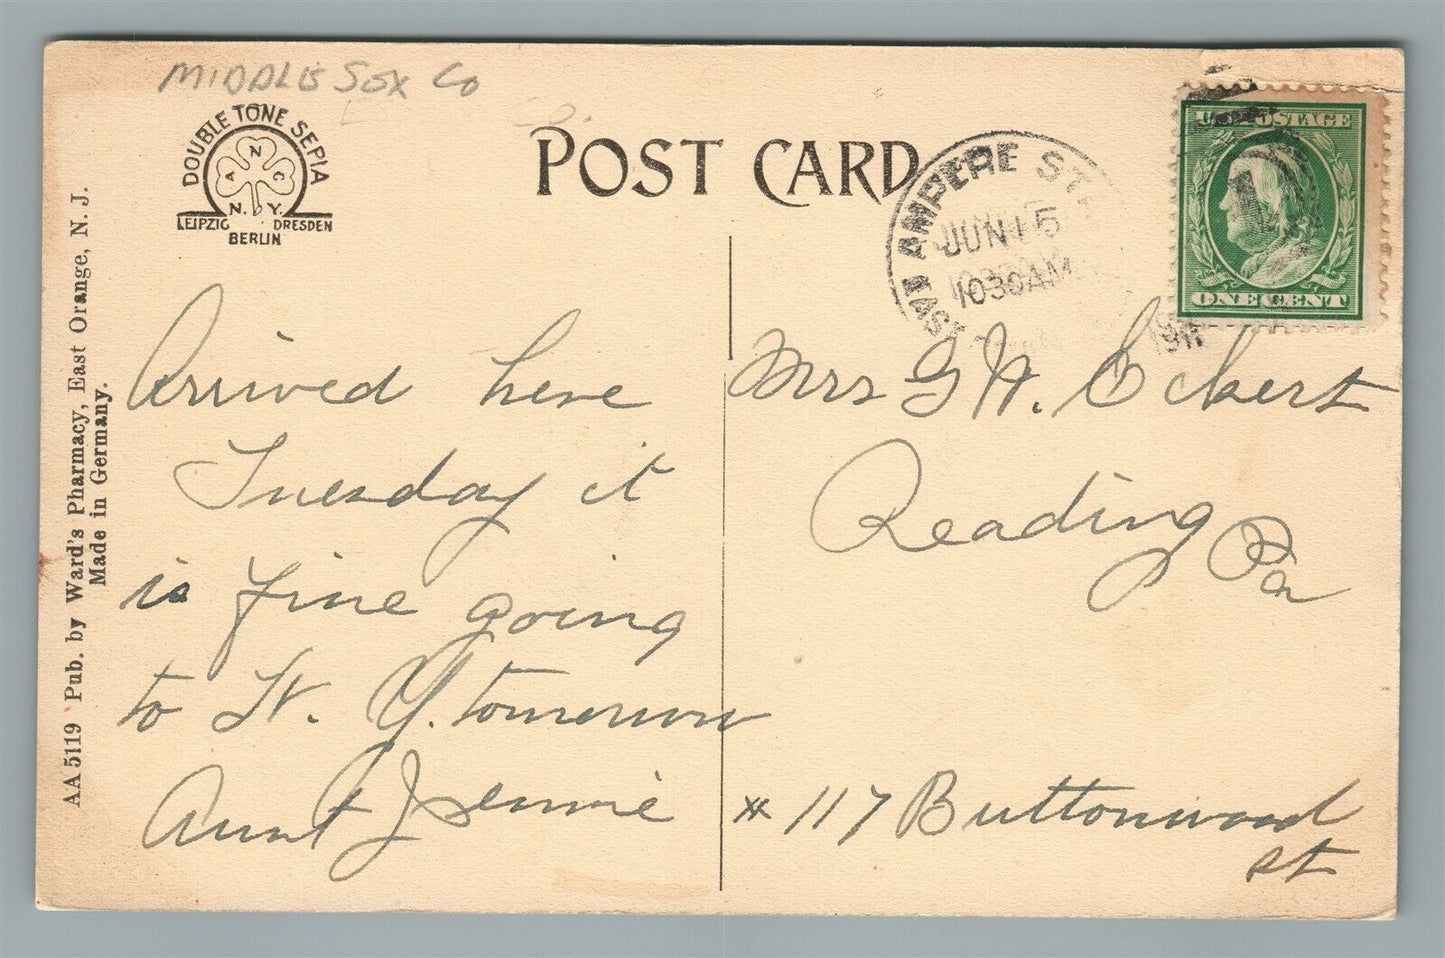 MIDDLESEX Co
DOUBLE TONE SEPIA
A N C
N. Y.
LEIPZIG DRESDEN
BERLIN
POST CARD
AMPERE ST
JUN 15
1030AM
1911
U.S. POSTAGE
ONE CENT
AA 5119 Pub. by Ward's Pharmacy, East Orange, N. J.
Made in Germany.
Arrived here
Tuesday it
is fine going
to N. Y. tomorrow
Aunt Jennie
Mrs G W. Eckert
Reading
Pa
# 117 Buttonwood
st